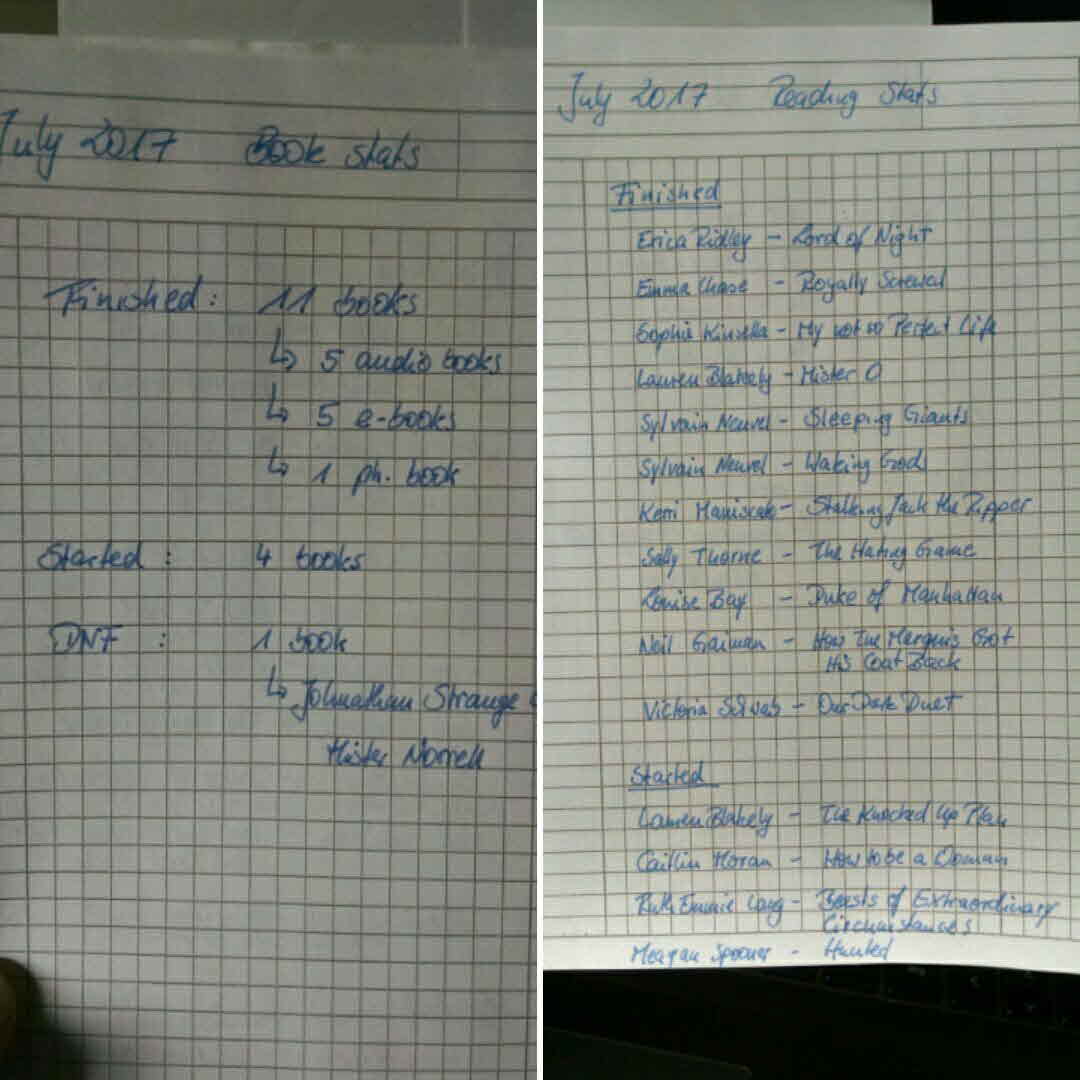 July 2017 Book stats
Finished: 11 books
↳ 5 audio books
↳ 5 e-books
↳ 1 ph. book
Started: 4 books
DNF: 1 book
↳ Johnathan Strange
Mister Norrell
July 2017 Reading Stats
Finished
Erica Ridley - Lord of Night
Emma Chase - Royally Screwed
Sophie Kinsella - My not so Perfect Life
Lauren Blakely - Mister O
Sylvain Neuvel - Sleeping Giants
Sylvain Neuvel - Waking Gods
Kerri Maniscalco - Stalking Jack the Ripper
Sally Thorne - The Hating Game
Louise Bay - Duke of Manhattan
Neil Gaiman - How The Marquis Got
His Coat Back
Victoria Schwab - Our Dark Duet
Started
Lauren Blakely - The Knocked Up Plan
Caitlin Moran - How to be a Woman
Ruth Emmie Lang - Beasts of Extraordinary
Circumstances
Meagan Spooner - Hunted